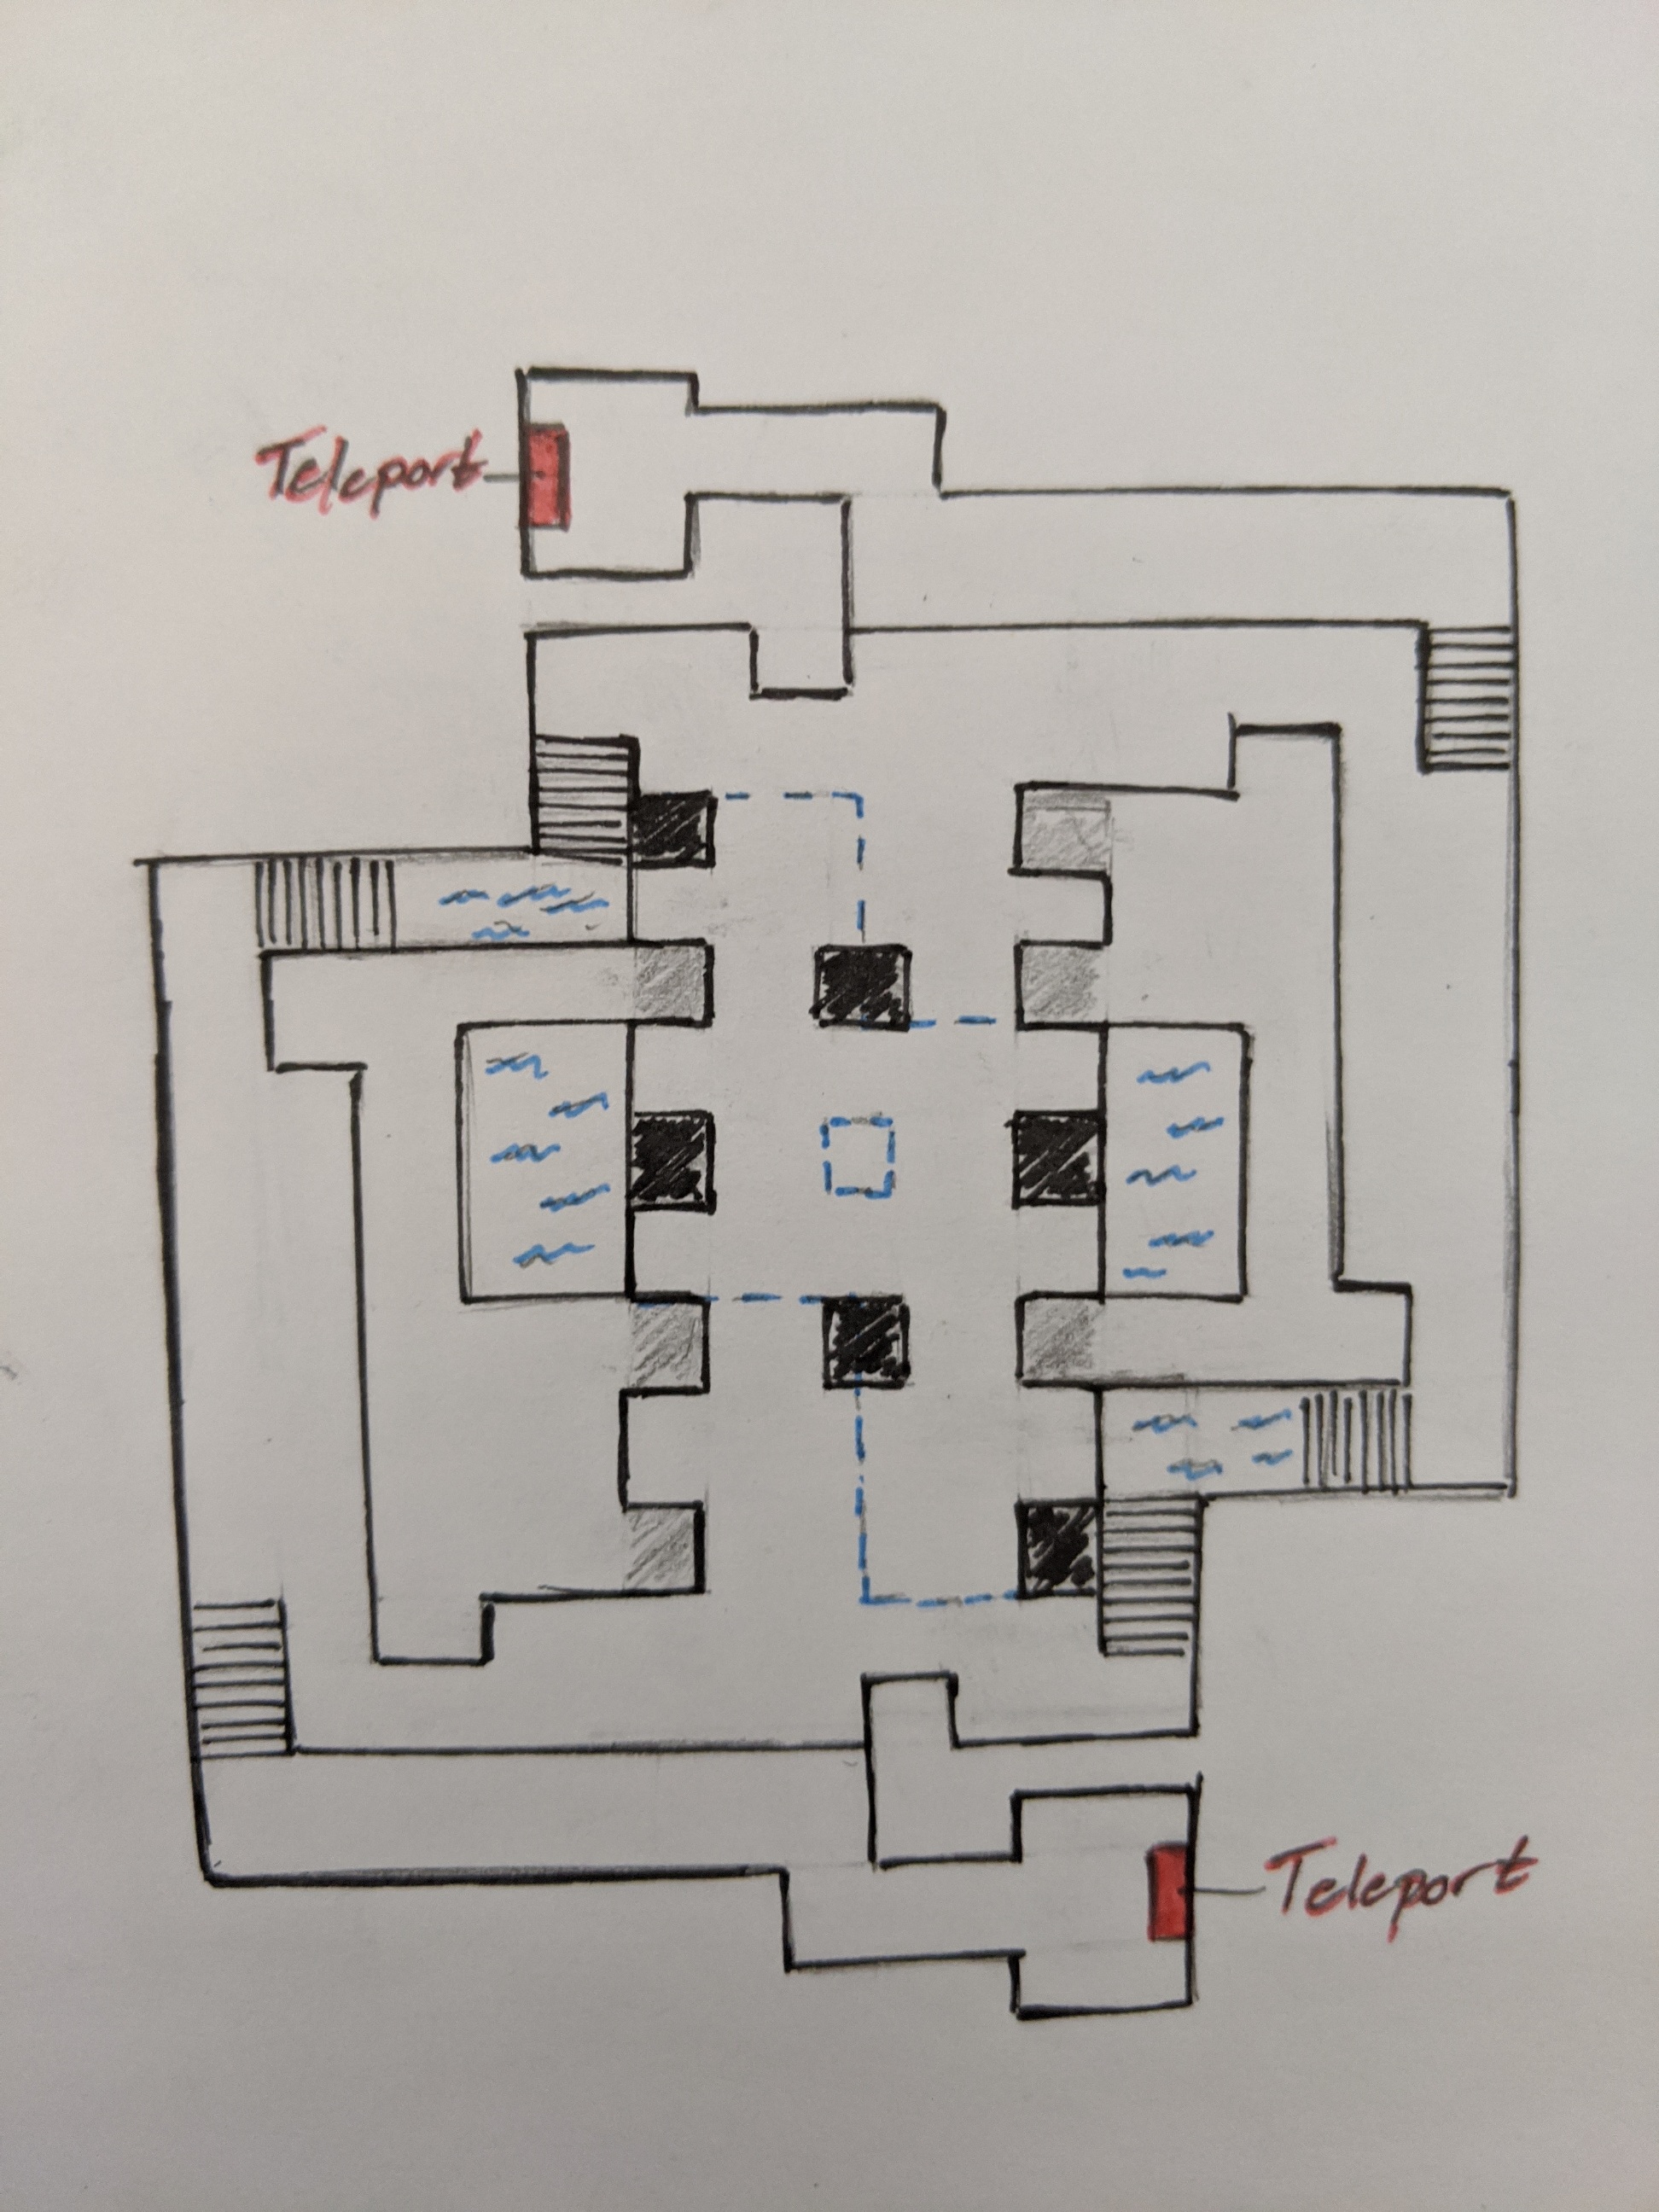 Teleport
Teleport